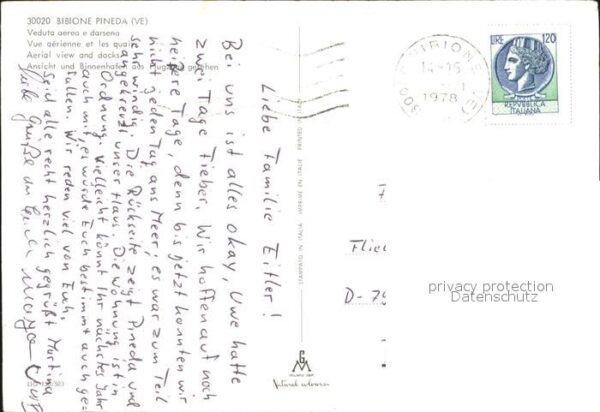 30020 BIBIONE PINEDA (VE)
Veduta aerea e darsena
Vue aérienne et les quais
Aerial view and docks
Ansicht und Binnenhafen aus Flugzeug gesehen
Liebe Familie Eitler!
Bei uns ist alles okay, Uwe hatte
zwei Tage Fieber. Wir hoffen auf noch
heißere Tage, denn bis jetzt konnten wir
nicht jeden Tag ans Meer; es war zum Teil
sehr windig. Die Rückseite zeigt Pineda und
angekreuzt unser Haus. Die Wohnung ist in
Ordnung. Vielleicht könnt Ihr nächstes Jahr
auch mit, es würde Euch bestimmt auch ge-
fallen. Wir reden viel von Euch.
Seid alle recht herzlich gegrüßt Martina
Liebe Grüße an Euch
STAMPATO IN ITALIA IMPRIMÉ EN ITALIE PRINTED
GM
Natural colourcux
BIBIONE (VE)
14-15
1978
LIRE 120
REPVBBLICA
ITALIANA
Flie
D-79
privacy protection
Datenschutz